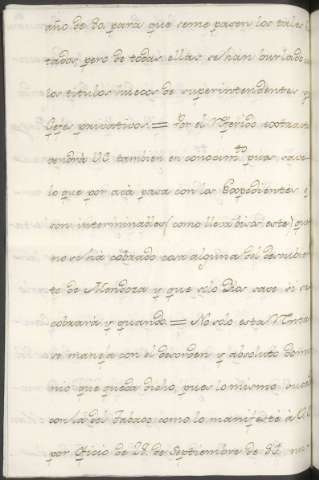 año de 80. para que seme pasen los tales
tados, pero de todas ellas se han burlado
los titulos huecos de superintendentes y
Gefes privativos = Por el referido extracto
vendrá V.E. tambien en conocim.to pues sabe
lo que por acá pasa con los Expedientes y
son interminables (como lleva bisos este) que
no se há cobrado cosa alguna del descubier
to de Mendoza y que sólo Dios sabe si se
cobrará y quando = No sólo esta Renta
se maneja con el desorden y absoluto domi
nio que queda dicho, pues lo mismo sucede
con la del Tabaco como lo manifesté à V.E.
por Oficio de 28. de Septiembre de 81.